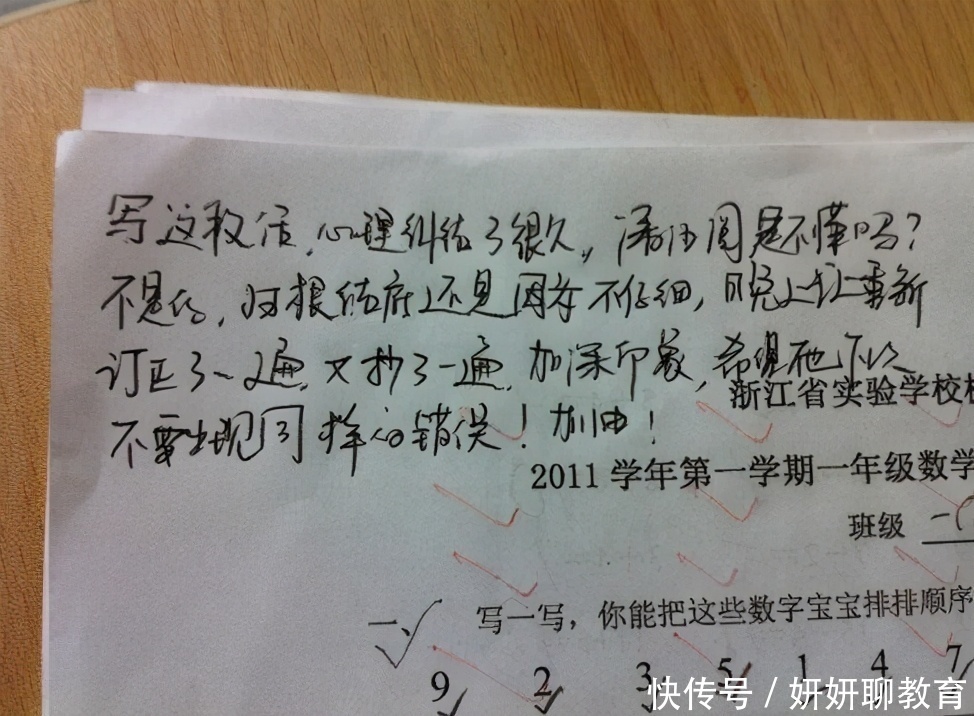 写这段话,心理纠结了很久,潘由阅是不懂吗?
不是的,归根结底还是因为不仔细,晚上让重新
订正了一遍,又抄了一遍,加深印象,希望他下次
不要出现同样的错误!加油!
浙江省实验学校
2011 学年第一学期一年级数学
班级 一(
一、 写一写,你能把这些数字宝宝排排顺序
9 2 3 5 1 4 7
快传号 / 妍妍聊教育